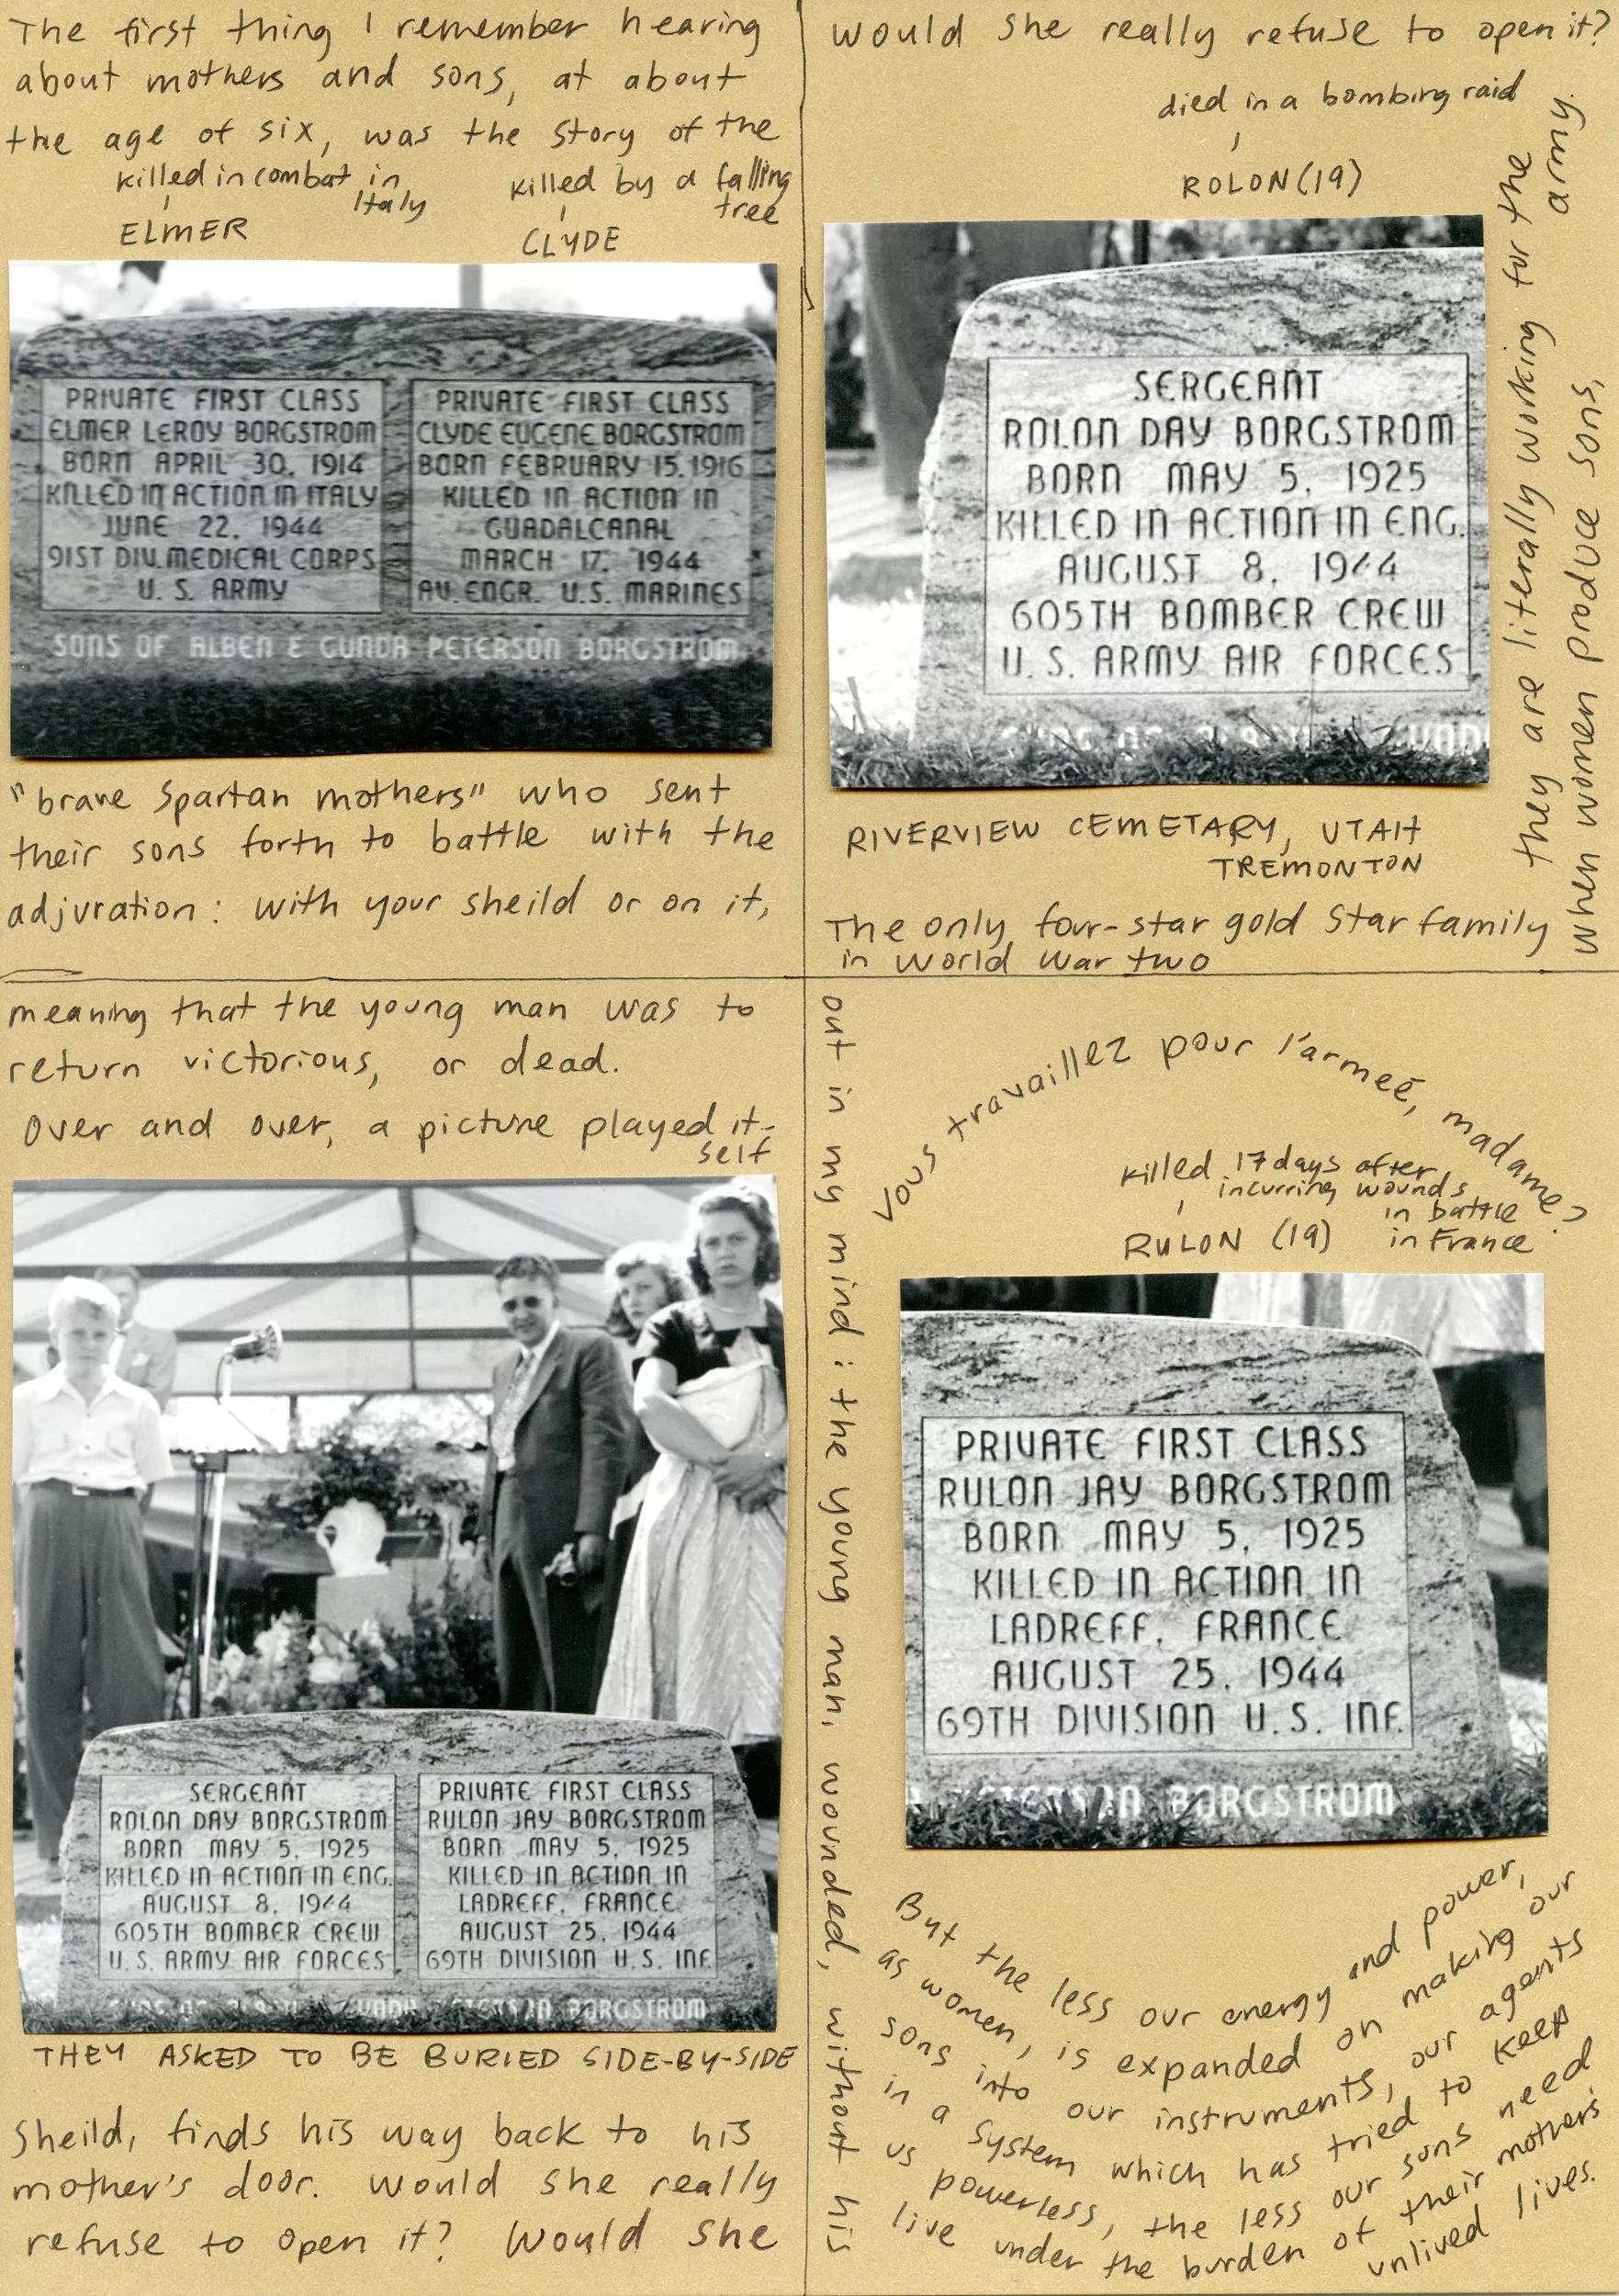 The first thing I remember hearing
about mothers and sons, at about
the age of six, was the story of the
killed in combat in
Italy
ELMER
killed by a falling
tree
CLYDE
PRIVATE FIRST CLASS
ELMER LEROY BORGSTROM
BORN APRIL 30, 1914
KILLED IN ACTION IN ITALY
JUNE 22, 1944
91ST DIV. MEDICAL CORPS
U. S. ARMY
PRIVATE FIRST CLASS
CLYDE EUGENE BORGSTROM
BORN FEBRUARY 15, 1916
KILLED IN ACTION IN
GUADALCANAL
MARCH 17, 1944
AV. ENGR. U.S. MARINES
SONS OF ALBEN & GUNDA PETERSON BORGSTROM
"brave Spartan mothers" who sent
their sons forth to battle with the
adjuration: with your sheild or on it,
meaning that the young man was to
return victorious, or dead.
Over and over, a picture played it-
self
out in my mind: the young man, wounded, without his
SERGEANT
ROLON DAY BORGSTROM
BORN MAY 5, 1925
KILLED IN ACTION IN ENG.
AUGUST 8, 1944
605TH BOMBER CREW
U. S. ARMY AIR FORCES
PRIVATE FIRST CLASS
RULON JAY BORGSTROM
BORN MAY 5, 1925
KILLED IN ACTION IN
LADREFF, FRANCE
AUGUST 25, 1944
69TH DIVISION U. S. INF.
BORGSTROM
THEY ASKED TO BE BURIED SIDE-BY-SIDE
Sheild, finds his way back to his
mother's door. Would she really
refuse to open it? Would she
would she really refuse to open it?
died in a bombing raid
ROLON (19)
SERGEANT
ROLON DAY BORGSTROM
BORN MAY 5, 1925
KILLED IN ACTION IN ENG.
AUGUST 8, 1944
605TH BOMBER CREW
U. S. ARMY AIR FORCES
RIVERVIEW CEMETARY, UTAH
TREMONTON
The only four-star gold Star family
in World War two
When women produce sons,
they are literally working for the
army.
Vous travaillez pour l'armeé, madame?
killed 17 days after
incurring wounds
in battle
in France
RULON (19)
PRIVATE FIRST CLASS
RULON JAY BORGSTROM
BORN MAY 5, 1925
KILLED IN ACTION IN
LADREFF, FRANCE
AUGUST 25, 1944
69TH DIVISION U. S. INF.
BORGSTROM
But the less our energy and power,
as women, is expanded on making our
sons into our instruments, our agents
in a system which has tried to keep
us powerless, the less our sons need
live under the burden of their mothers'
unlived lives.